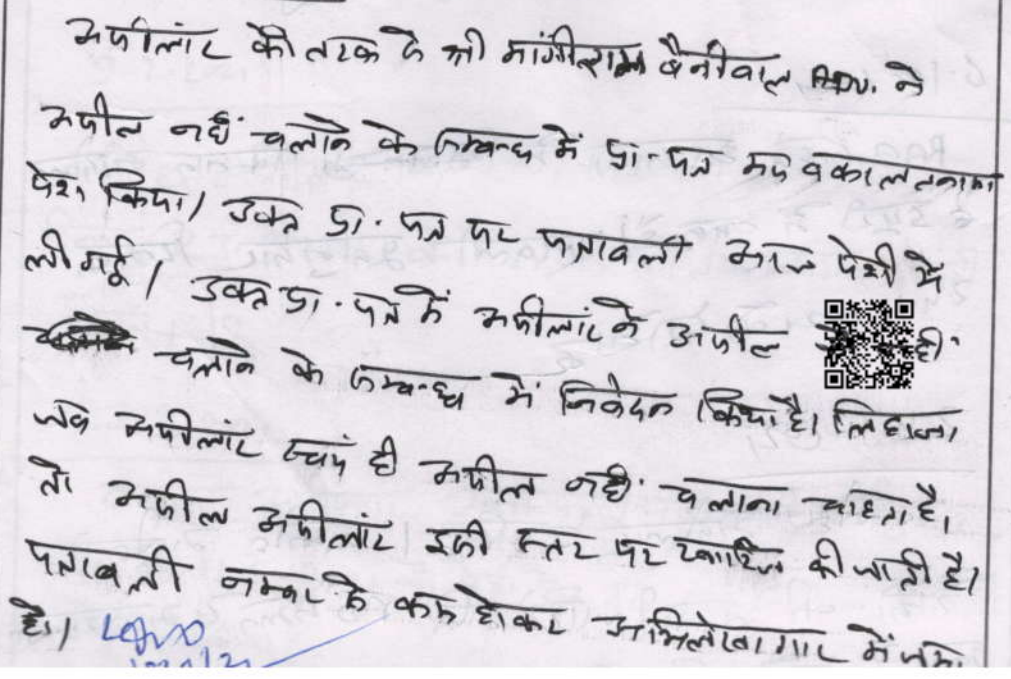 अपीलांट की तरफ से श्री मांगीराम बैनीवाल Adv. ने
अपील नहीं चलाने के सम्बन्ध में प्रा. पत्र मय वकालतनामा
पेश किया। उक्त प्रा. पत्र पर पत्रावली आज पेशी में
ली गई। उक्त प्रा. पत्र में अपीलांट ने अपील ही
चलाने के सम्बन्ध में निवेदन किया है। लिहाजा
जब अपीलांट स्वयं ही अपील नहीं चलाना चाहता है।
तो अपील अपीलांट इसी स्तर पर खारिज की जाती है।
पत्रावली नम्बर से कम होकर अभिलेखागार में जमा
हो।